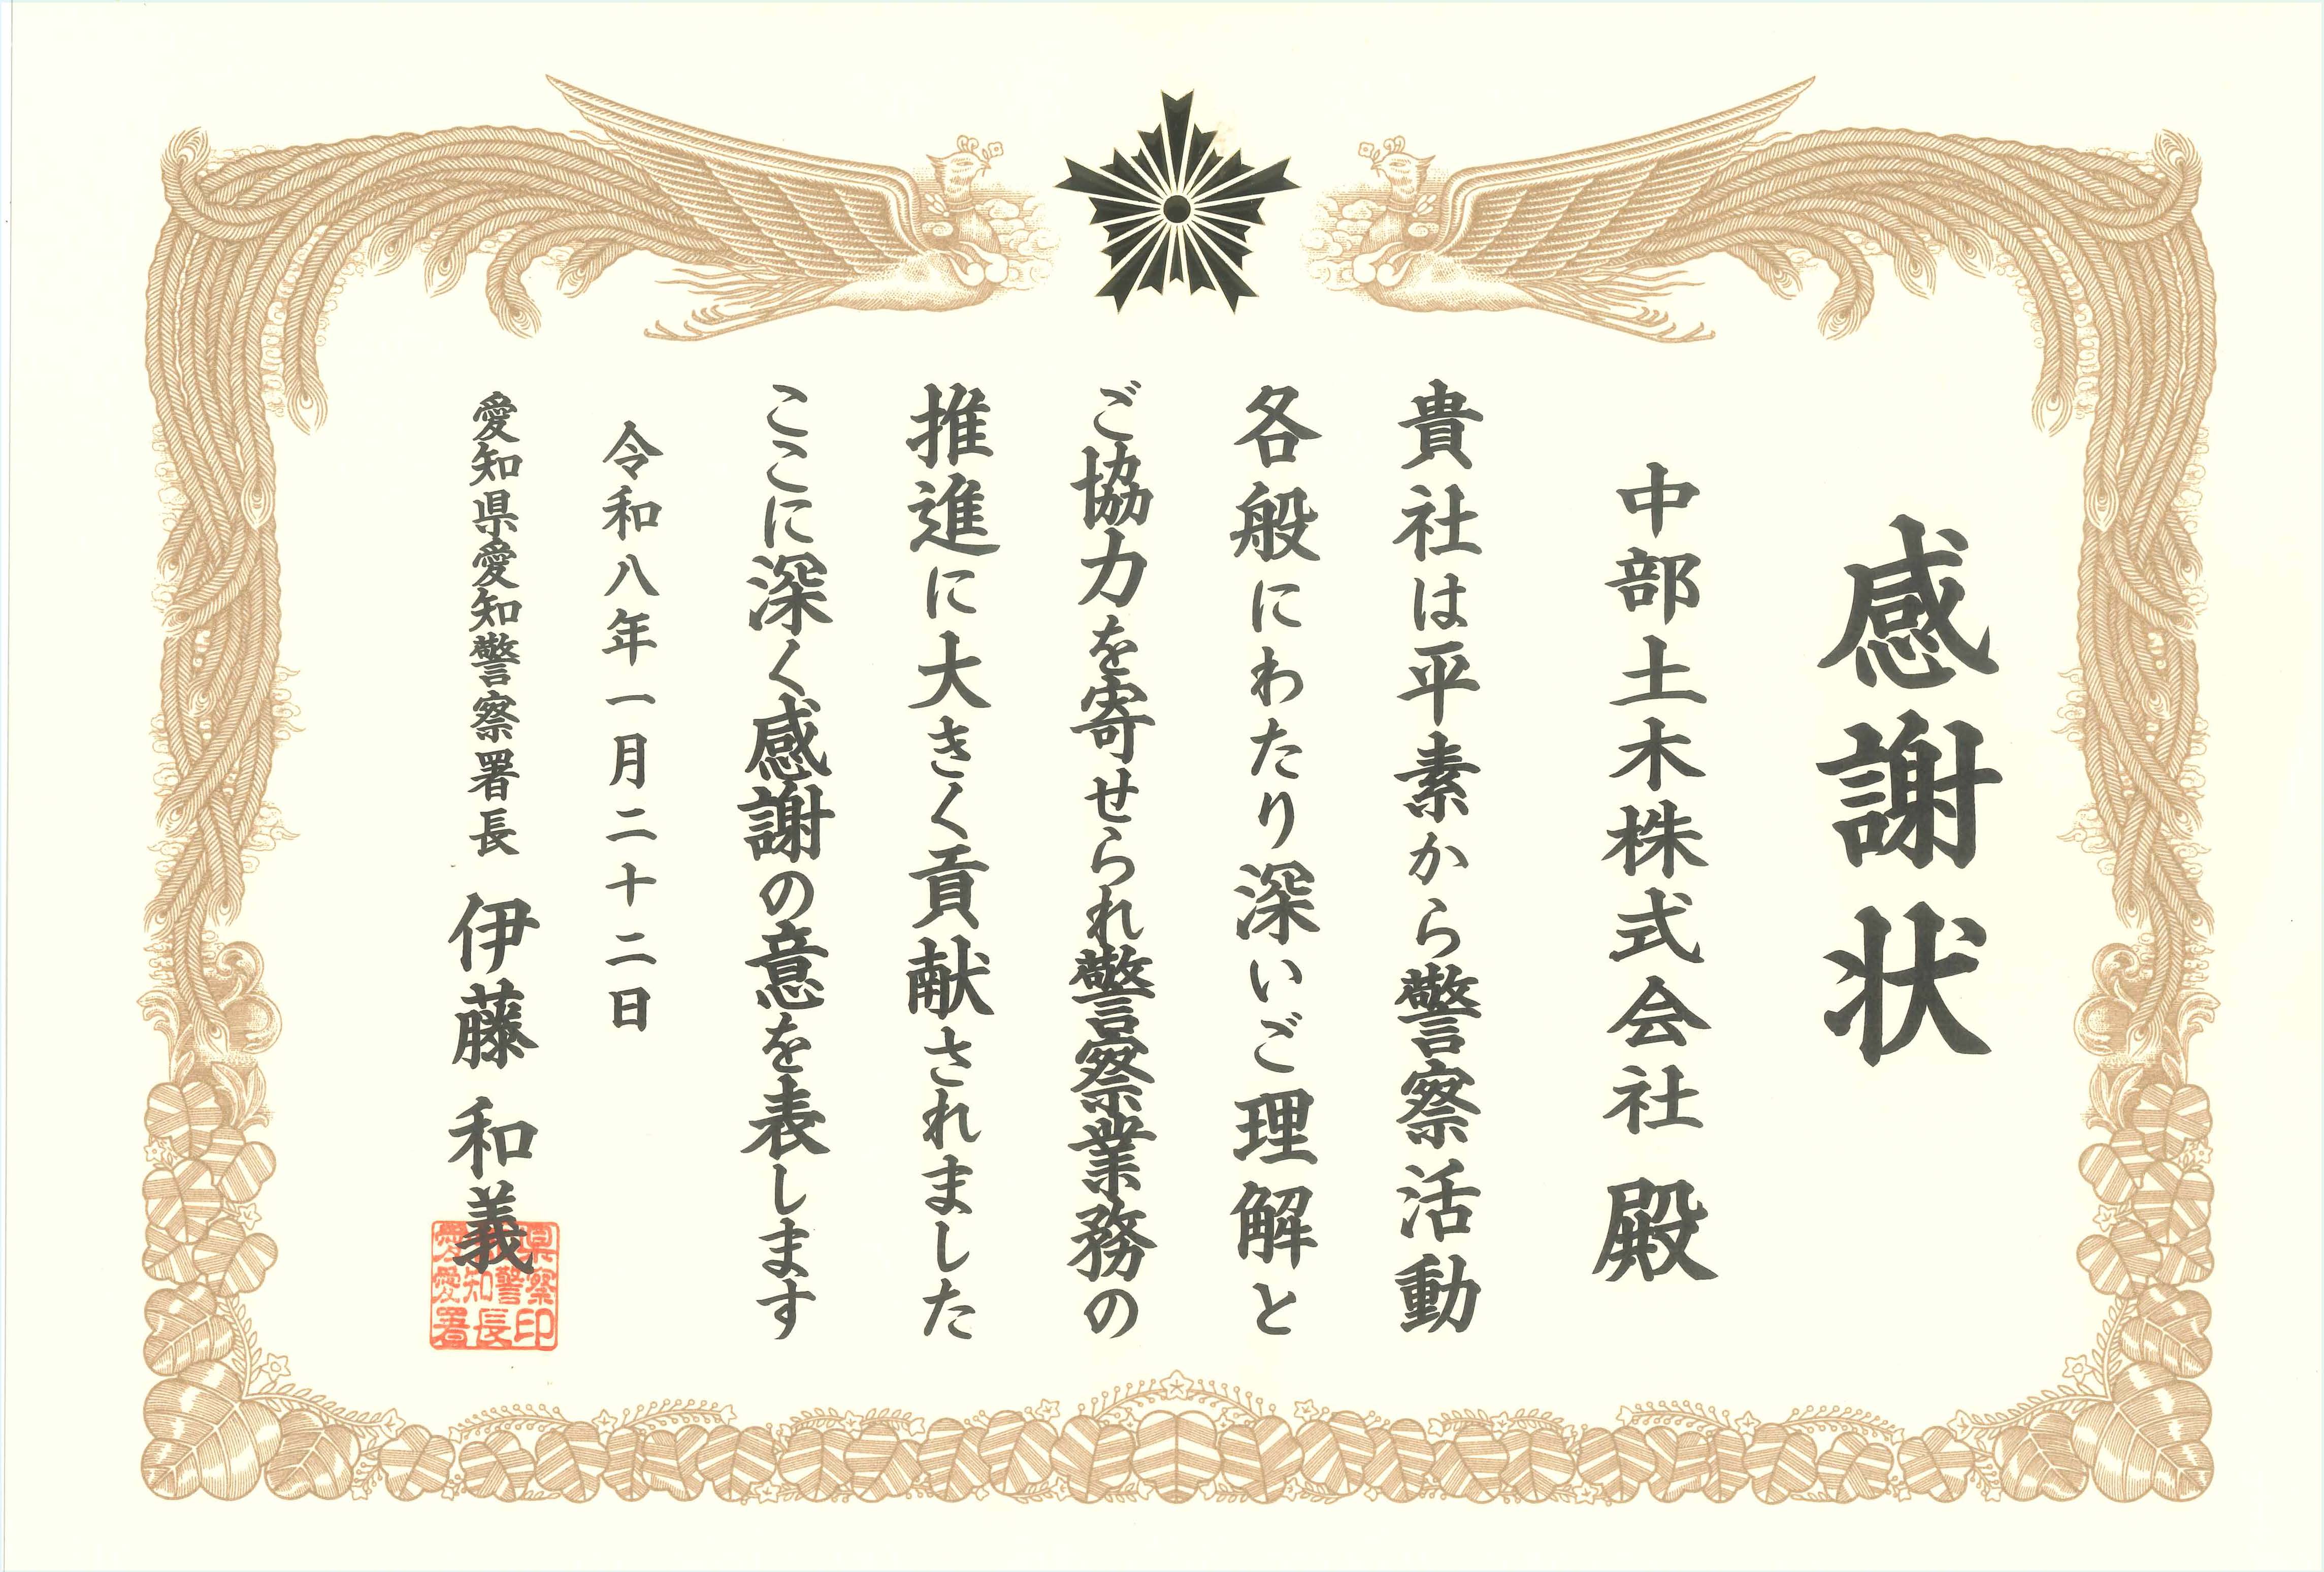 感謝状
中部土木株式会社 殿
貴社は平素から警察活動
各般にわたり深いご理解と
ご協力を寄せられ警察業務の
推進に大きく貢献されました
ここに深く感謝の意を表します
令和八年一月二十二日
愛知県愛知警察署長 伊藤和義
愛知県
愛知警察
署長印